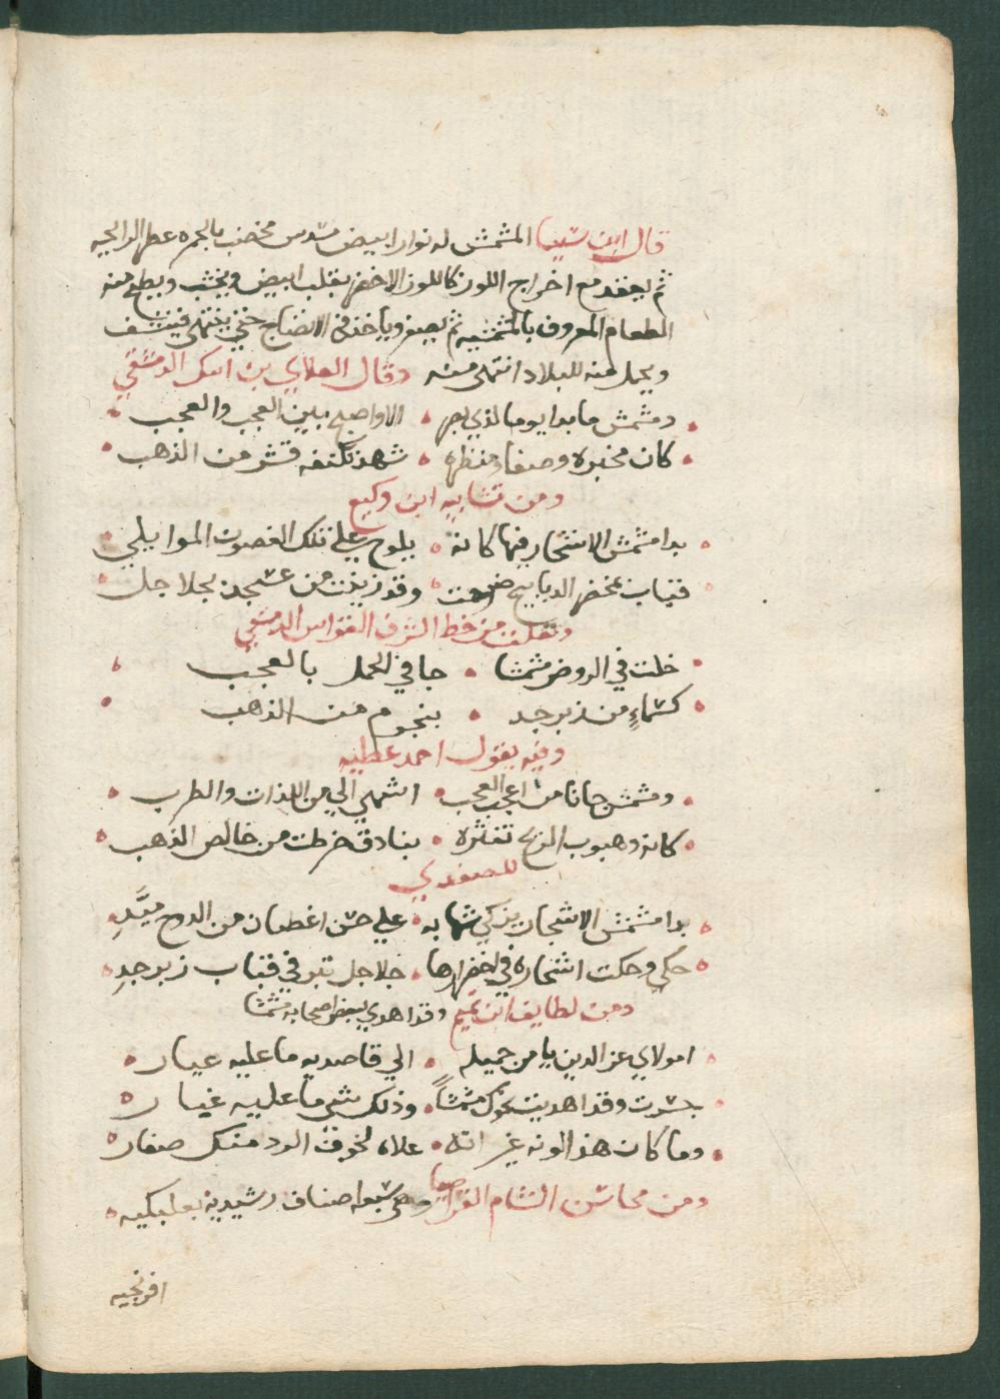 قال ابن سينا المشمش له نوار ابيض مسدس مخضب بالحمره عطر الرايحه
ثم يعقد مع اخراج اللوز كاللوز الاخضر بقلب ابيض ويخشب ويطبخ منه
الطعام المعروف بالمشمشيه ثم يصفر وياخذ في الانضاج حتي ينتهي فينشف
ويحمل منه للبلاد انتهي منه وقال العلاي بن ايبك الدمشقي
ومشمش ما بدا يوما لذي بصر • الا واصبح بين العجب والعجب •
كان مخبره وصفا ومنظره • شهد تكنفه قشر من الذهب •
ومن تشابيه ابن وكيع
بدا مشمش الاشجار فيها كانه • يلوح علي تلك الغصون الموايلي •
قباب بخضر الديابيج ضربت • وقد زينت من عسجد بجلاجل •
ونقلت من خط الشرف القواس الدمشقي
خلت في الروض مشمشا • جا في الحمل بالعجب •
كسماءٍ من زبرجد • بنجوم من الذهب •
وفيه يقول احمد عطيه
ومشمش جانا من اعجب العجب • اشهي الي من اللذات والطرب •
كانه وهبوب الريح تنثره • بنادق خرطت من خالص الذهب •
للصفدي
بدا مشمش الاشجار يذكي شهابه • علي حسن اغصان من الدوح ميَّدِ •
حكي وحكت اشجاره في اخضرارها • جلاجل تبر في قباب زبرجدِ •
ومن لطايف ابن تميم وقد اهدي لبعض اصحابه مشمشا
امولاي عز الدين يا من جميله • الي قاصديه ما عليه عيار •
جسرت وقد اهديت نحوك مشمشاً • وذلك شي ما عليه غبار •
وما كان هذا لونه غير انه • علاه لخوف الرد منك صفار •
ومن محاسن الشام القراصيا وهي سبعه اصناف رشيديه بعلبكيه •
افرنجيه